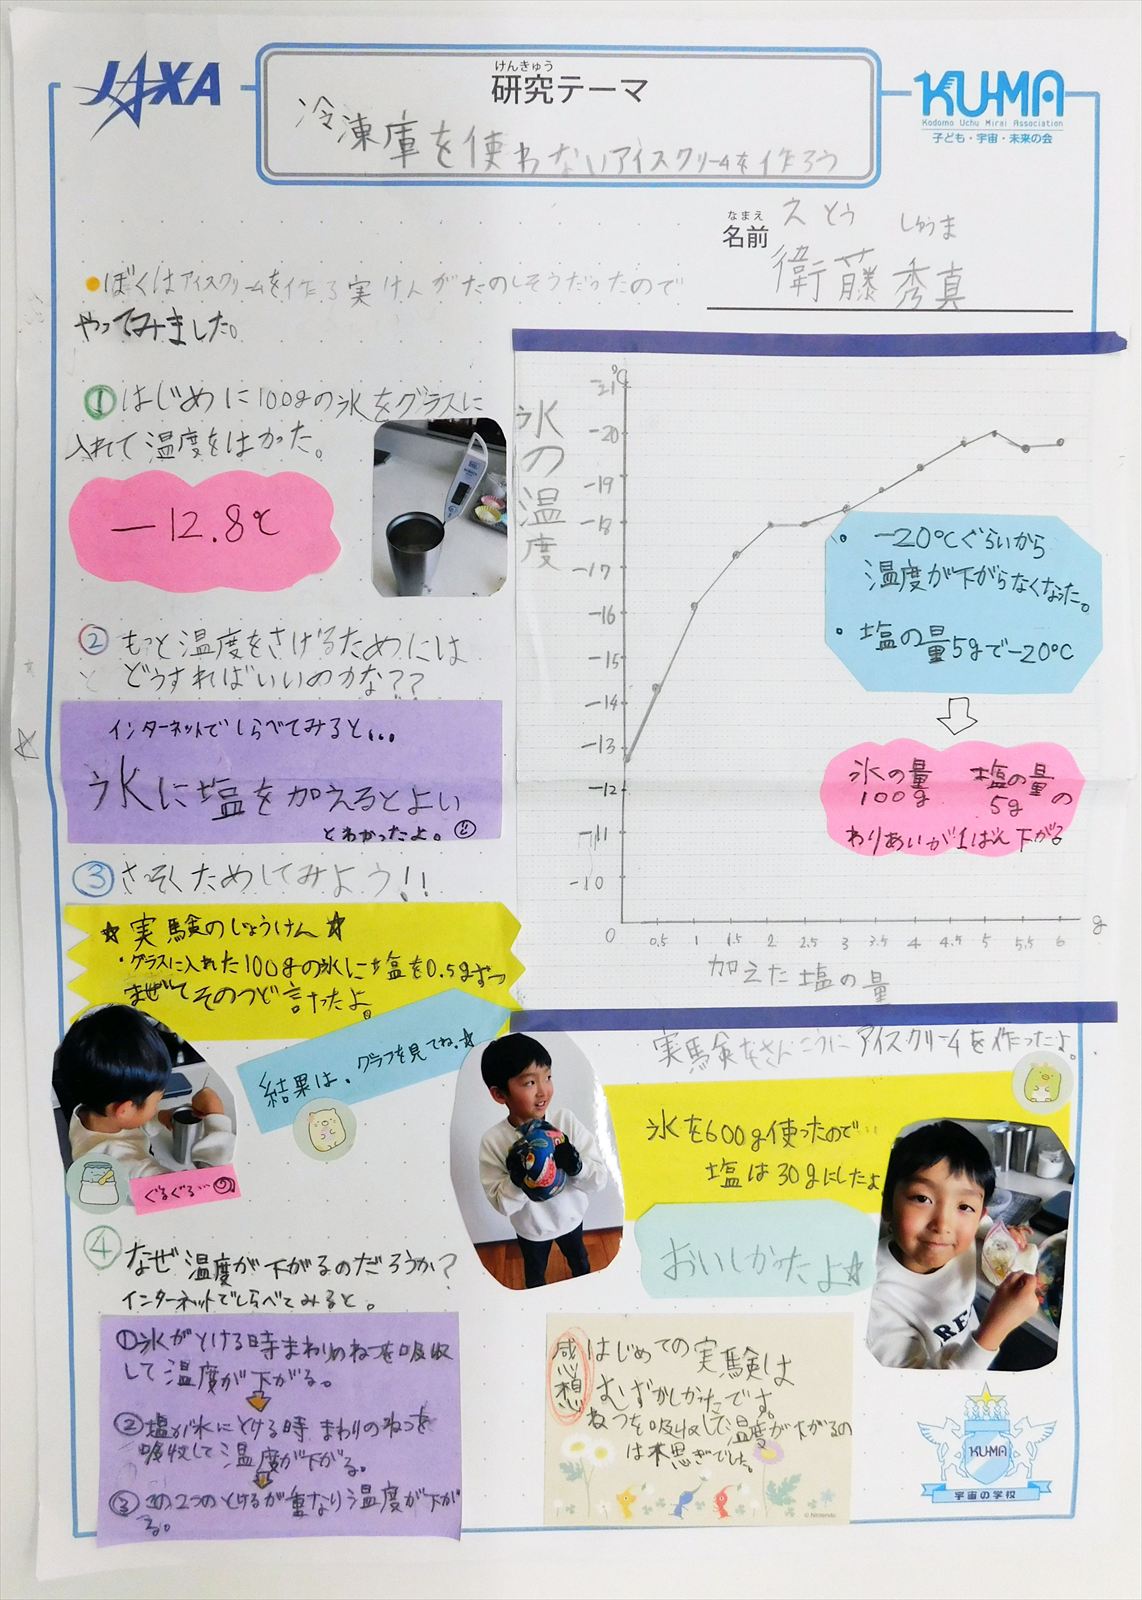 JAXA
けんきゅう
研究テーマ
冷凍庫を使わないアイスクリームを作ろう
KU-MA
Kodomo Uchu Mirai Association
子ども・宇宙・未来の会
なまえ
名前
えとう しゅうま
衛藤 秀真
ぼくはアイスクリームを作る実けんがたのしそうだったので
やってみました。
①はじめに100gの氷をグラスに
入れて温度をはかった。
-12.8℃
②もっと温度をさげるためには
どうすればいいのかな??
インターネットでしらべてみると...
氷に塩を加えるとよい
とわかったよ。
③さっそくためしてみよう!!
☆実験のじょうけん☆
・グラスに入れた100gの氷に塩を0.5gずつ
まぜてそのつど言ったよ。
結果は、グラフを見てね。☆
ぐるぐる…
④なぜ温度が下がるのだろうか?
インターネットでしらべてみると。
①氷がとける時まわりのねつを吸収
して温度が下がる。
②塩が水にとける時まわりのねつを
吸収して温度が下がる。
③この2つのとけるが重なり温度が下が
る。
氷の温度
℃
-21
-20
-19
-18
-17
-16
-15
-14
-13
-12
-11
-10
0 0.5 1 1.5 2 2.5 3 3.5 4 4.5 5 5.5 6 g
加えた塩の量
・-20℃ぐらいから
温度が下がらなくなった。
・塩の量5gで-20℃
氷の量 塩の量
100g 5gの
わりあいが1ばん下がる
実験をさんこうにアイスクリームを作ったよ。
氷を600g使ったので…
塩は30gにしたよ
おいしかったよ☆
感想
はじめての実験は
むずかしかったです。
ねつを吸収して温度が下がるの
は不思ぎでした。
© Nintendo
KUMA
宇宙の学校